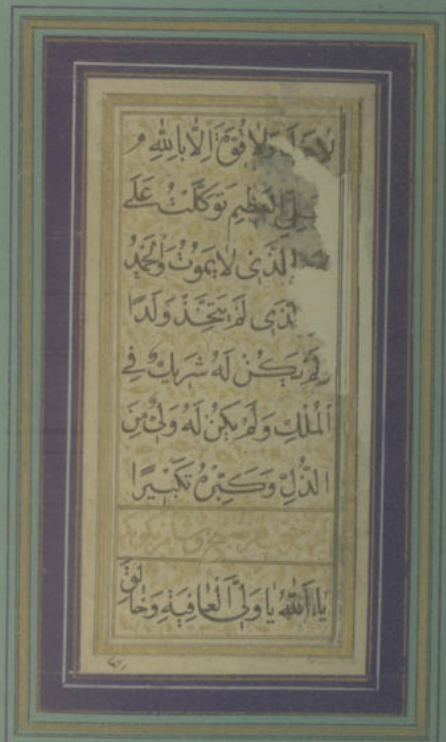 لَا حَوْلَ وَلَا قُوَّةَ اِلَّا بِاللّٰهِ
العَظيمِ تَوَكَّلْتُ عَلَى
الَّذى لَا يَمُوتُ وَالْحَمْدُ
لَّذى لَمْ يَتَّخِذْ وَلَدًا
وَلَمْ يَكُنْ لَهُ شَرِيكٌ فِى
الْمُلْكِ وَلَمْ يَكُنْ لَهُ وَلِىٌّ مِنَ
الذُّلِّ وَكَبِّرْهُ تَكْبِيرًا
يَا اَللّٰهُ يَا وَلِىَّ الْعَافِيَةِ وَخَالِقَ